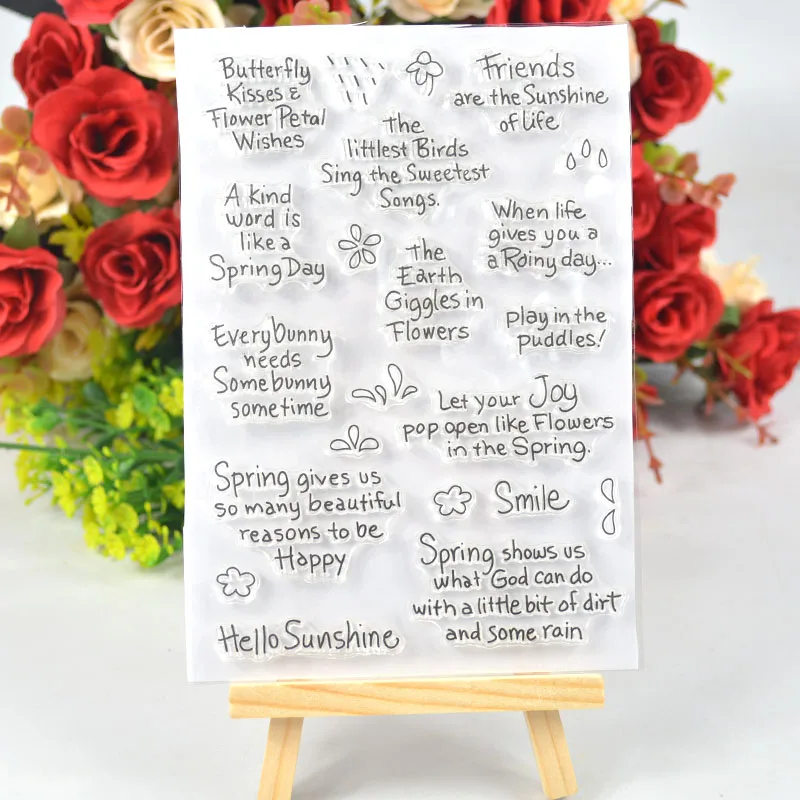 Butterfly
Kisses &
Flower Petal
Wishes
Friends
are the Sunshine
of life
The
littlest Birds
Sing the Sweetest
Songs.
A Kind
word is
like a
Spring Day
When life
gives you a
a Rainy day...
The
Earth
Giggles in
Flowers
play in the
puddles!
Everybunny
needs
Somebunny
sometime
Let your Joy
pop open like Flowers
in the Spring.
Spring gives us
so many beautiful
reasons to be
Happy
Smile
Spring shows us
what God can do
with a little bit of dirt
and some rain
Hello Sunshine